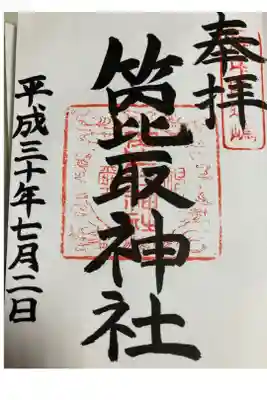 奉拝
箆取神社
平成三十年七月二日